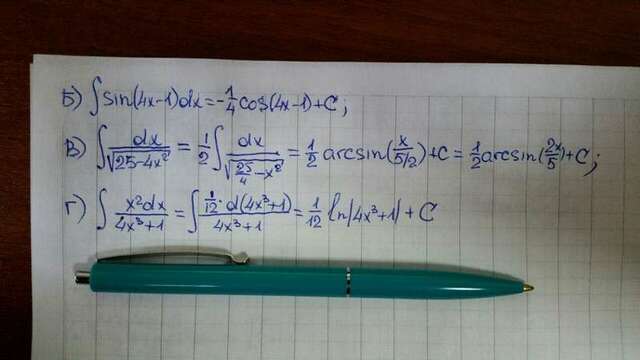 Б) ∫sin(4x-1)dx=-1/4cos(4x-1)+C;
В) ∫dx/√(25-4x²) = 1/2∫dx/√(25/4-x²) = 1/2arcsin(x/(5/2))+C = 1/2arcsin(2x/5)+C;
Г) ∫x²dx/(4x³+1) = ∫(1/12·d(4x³+1))/(4x³+1) = 1/12 ln|4x³+1| + C